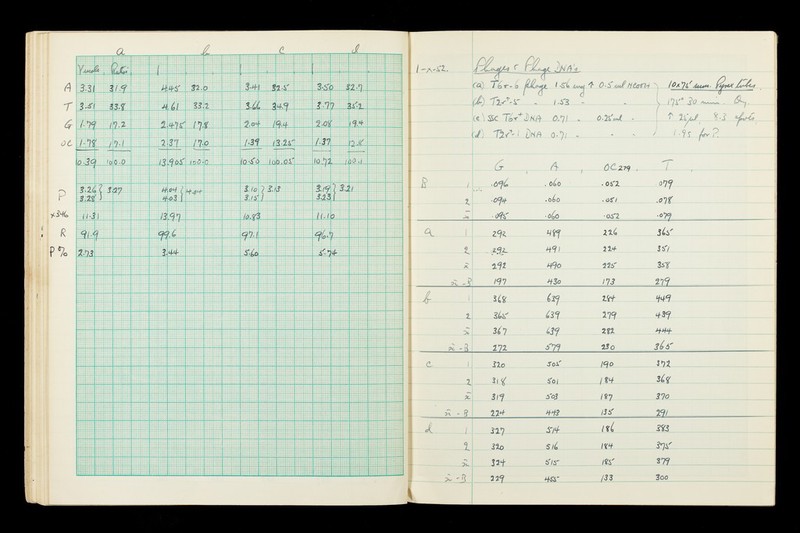 a b c d
A 3.31 31.9 4.45 32.0 3.41 32.5 3.50 32.7
T 3.51 33.8 4.61 33.2 3.66 34.9 3.77 35.2
G 1.79 17.2 2.475 17.8 2.04 19.4 2.08 19.4
OC 1.78 17.1 2.37 17.0 1.39 13.25 1.37
10.39 100.0 13.905 100.0 10.50 100.05 10.72
P 3.26 3.27 4.04 4.04 3.10 3.13 3.19 3.21
3.28 4.03 3.15 3.23
x34⁄10 11.31 13.97 10.83 11.10
R 91.9 99.6 97.1 96.7
P % 2.73 3.44 5.60 5.74
1-x-52. Phages & Phage DNA's
(a) T6r.6 phage 1.56 mg 0.5 ml HCOOH 10x75 mm. Pyrex tubes
(b) T2r+.5 " 1.53 " " 175° 30
(c) SSC T6r+ DNA 0.71 " 0.25 ml "
(d) T2r+.1 DNA 0.71 " " "
G A OC279 T
B 1 .096 .060 .052 .079
2 .094 .060 .051 .078
x̄ .095 .060 .052 .079
a 1 292 489 226 365
2 292 491 224 351
x̄ 292 490 225 358
x̄ - B 197 430 173 279
b 1 368 639 284 449
2 365 639 279 439
x̄ 367 639 282 444
x̄ - B 272 579 230 365
c 1 320 505 190 372
2 318 501 184 368
x̄ 319 503 187 370
x̄ - B 224 443 135 291
d 1 327 514 186 383
2 320 516 184 375
x̄ 324 515 185 379
x̄ - B 229 455 133 300